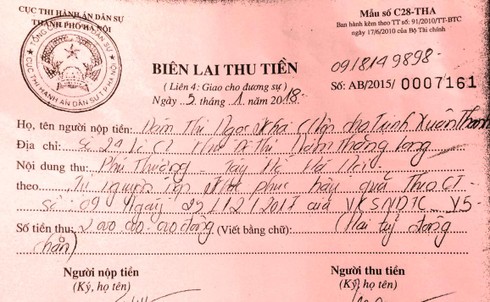 CỤC THI HÀNH ÁN DÂN SỰ
THÀNH PHỐ HÀ NỘI
Mẫu số C28-THA
Ban hành kèm theo TT số: 91/2010/TT-BTC
ngày 17/6/2010 của Bộ Tài chính
BIÊN LAI THU TIỀN
0918149898-
( Liên 4: Giao cho đương sự )
Số: AB/2015/ 0007161
Ngày 5. tháng .1. năm 2018.
Họ, tên người nộp tiền: Đàm Thị Ngọc Kha (Nộp cho Trịnh Xuân Thanh
Địa chỉ: Số 24 Khu Đô Thị Nam Thăng Long
Nội dung thu: Phú Thượng - Tây Hồ Hà Nội
theo Tự nguyện nộp khắc phục hậu quả Theo CT
số 09 ngày 29/12/2017 của VKSNDTC V5-
Số tiền thu: 2.000.000.000 đồng (Viết bằng chữ) (Hai tỷ đồng
chẵn)
Người nộp tiền
Người thu tiền
(Ký, họ tên)
(Ký, họ tên)